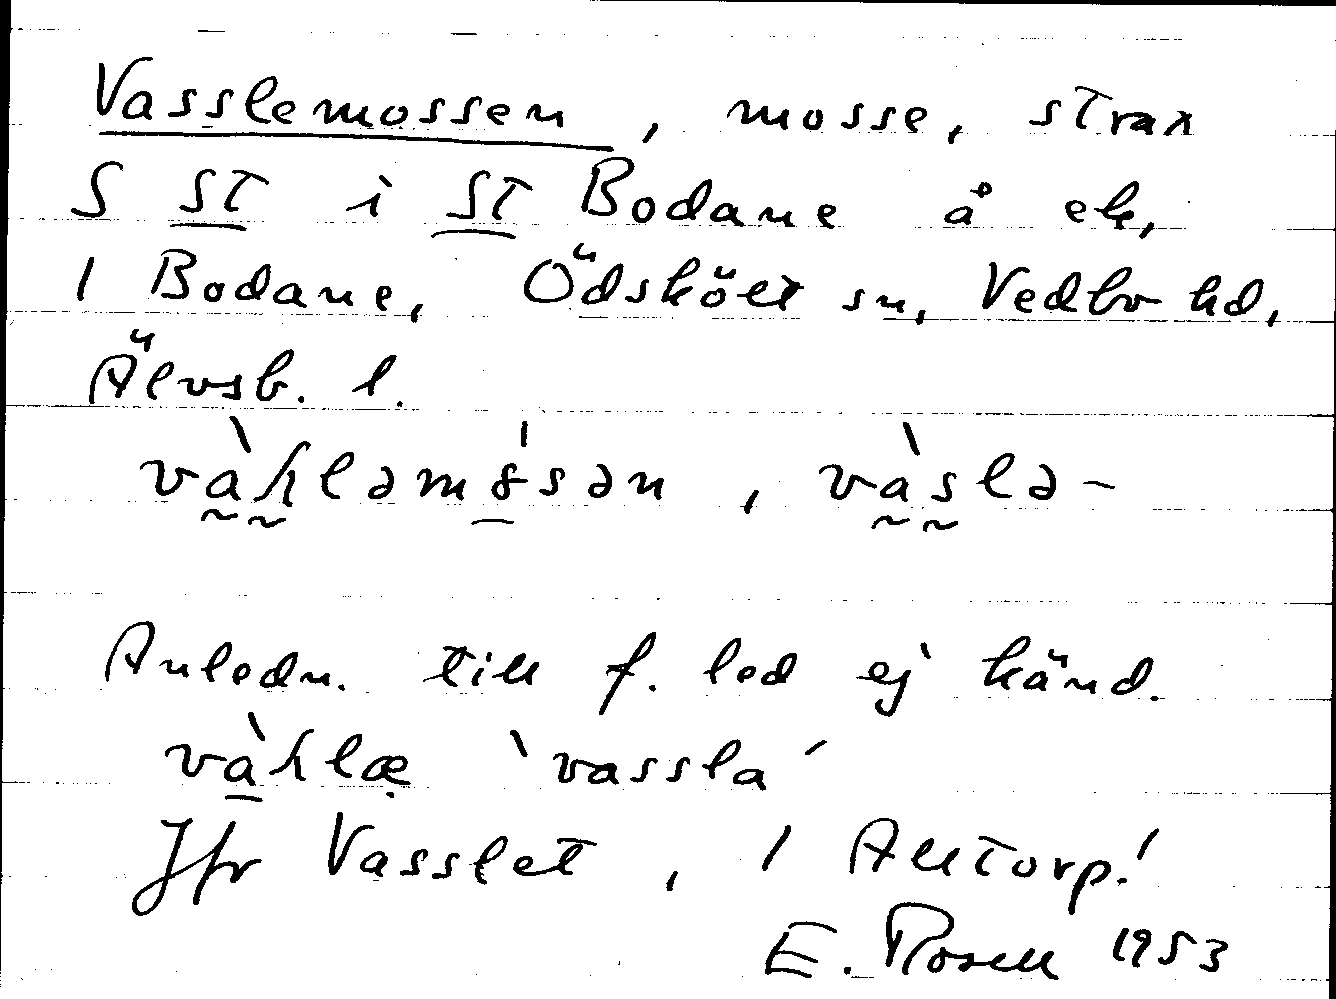 Vasslemossen, mosse, strax
S ST i ST Bodane å ek,
1 Bodane, Ödskölt sn, Vedbo hd,
Älvsb. l.
Anledn. till f. led ej känd.
`vassla´
Jfr Vasslet, 1 Alltorp!
E. Rosell 1953